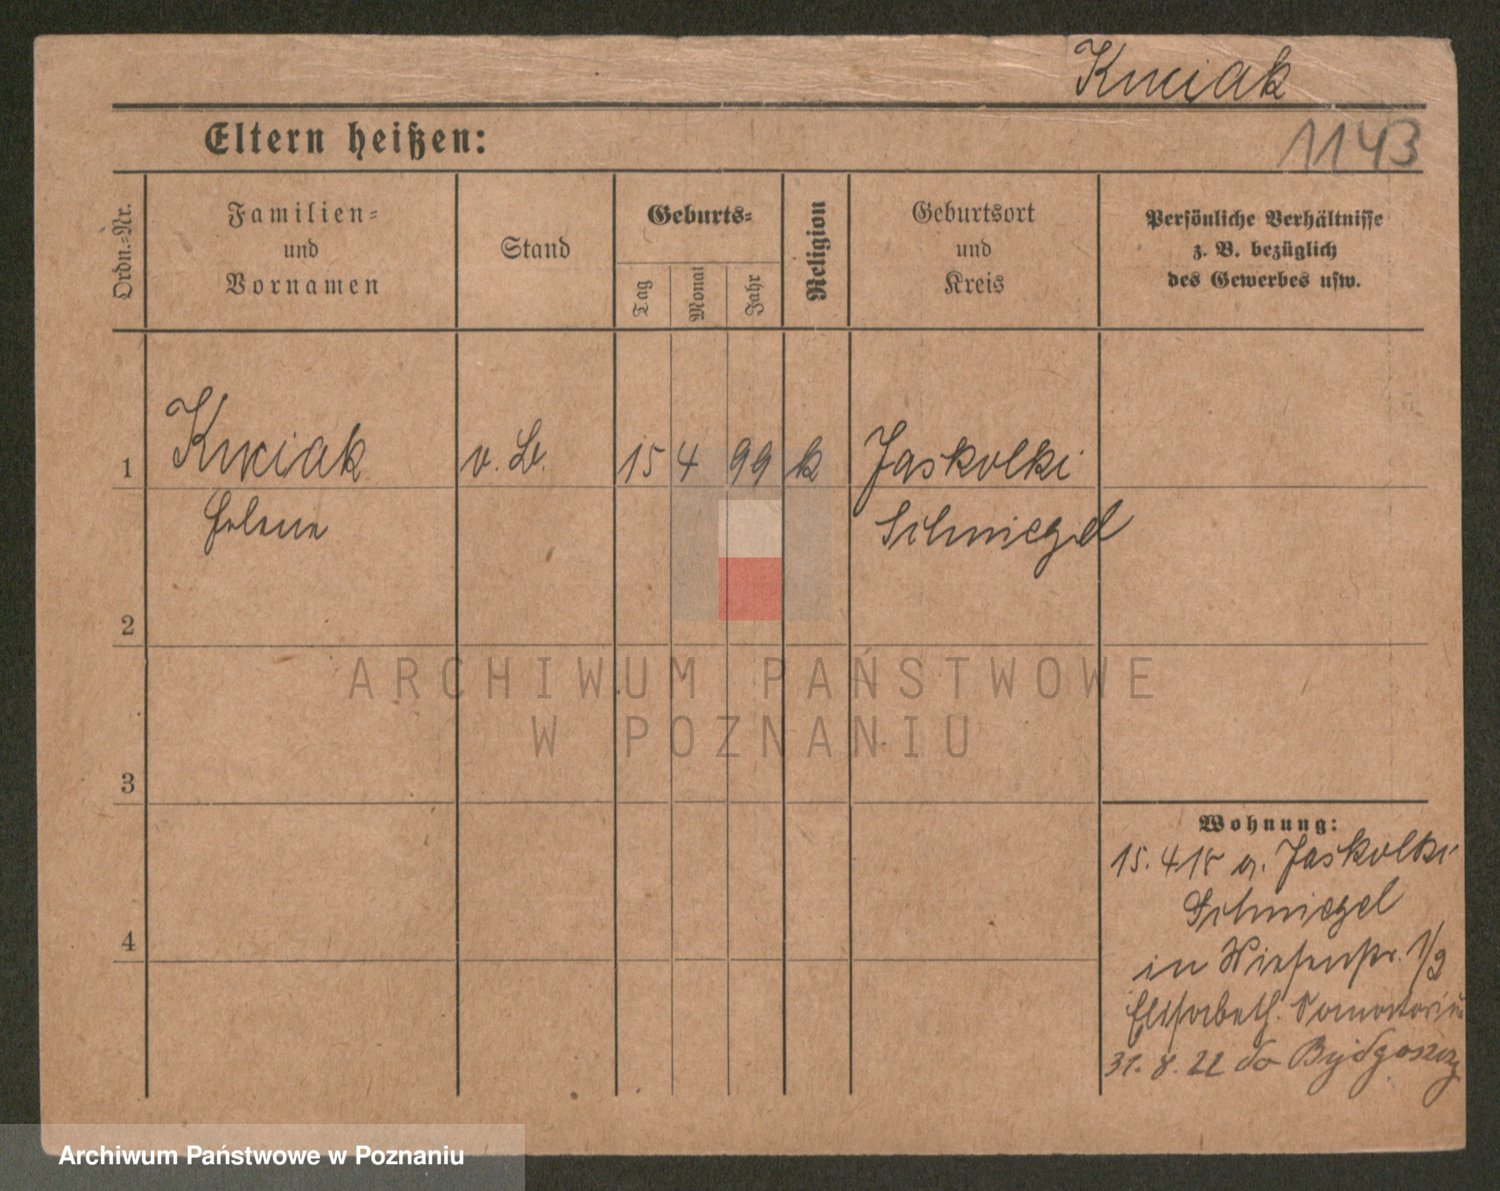 Kuciak
Eltern heißen:
1143
Ordn.-Nr.
Familien-
und
Vornamen
Stand
Geburts-
Tag
Monat
Jahr
Religion
Geburtsort
und
Kreis
Persönliche Verhältnisse
z. B. bezüglich
des Gewerbes usw.
1 Kuciak 15 4 99 k Jaskolki
Helene Schmiegel
2
3
4
Wohnung:
15. 4 18 Jaskolki
Schmiegel
in Wiesenstr. 1/9
Elisabeth. Sanatorium
31. 8. 22 do Bydgoszcz
ARCHIWUM PAŃSTWOWE
W POZNANIU
Archiwum Państwowe w Poznaniu